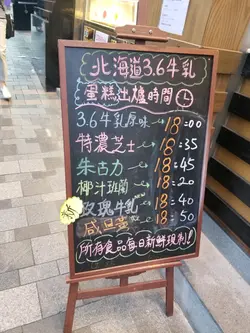 北海道3.6牛乳
蛋糕出爐時間
3.6牛乳原味→18:00
特濃芝士→18:35
朱古力→18:45
椰汁班蘭→18:20
玫瑰牛乳→18:40
咸旦黃→18:50
新
所有食品每日新鮮現制!